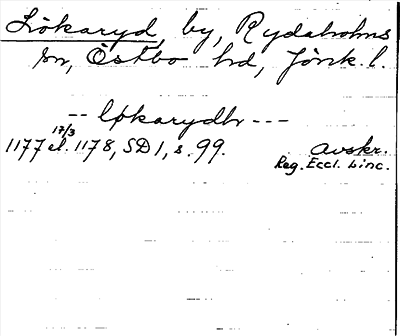 Lökaryd, by, Rydaholms
sn, Östbo hd, Jönk. l.
-- løkarydhr ---
17/3
1177 el. 1178, SD 1, s. 99. Avskr.
Reg. Eccl. Linc.